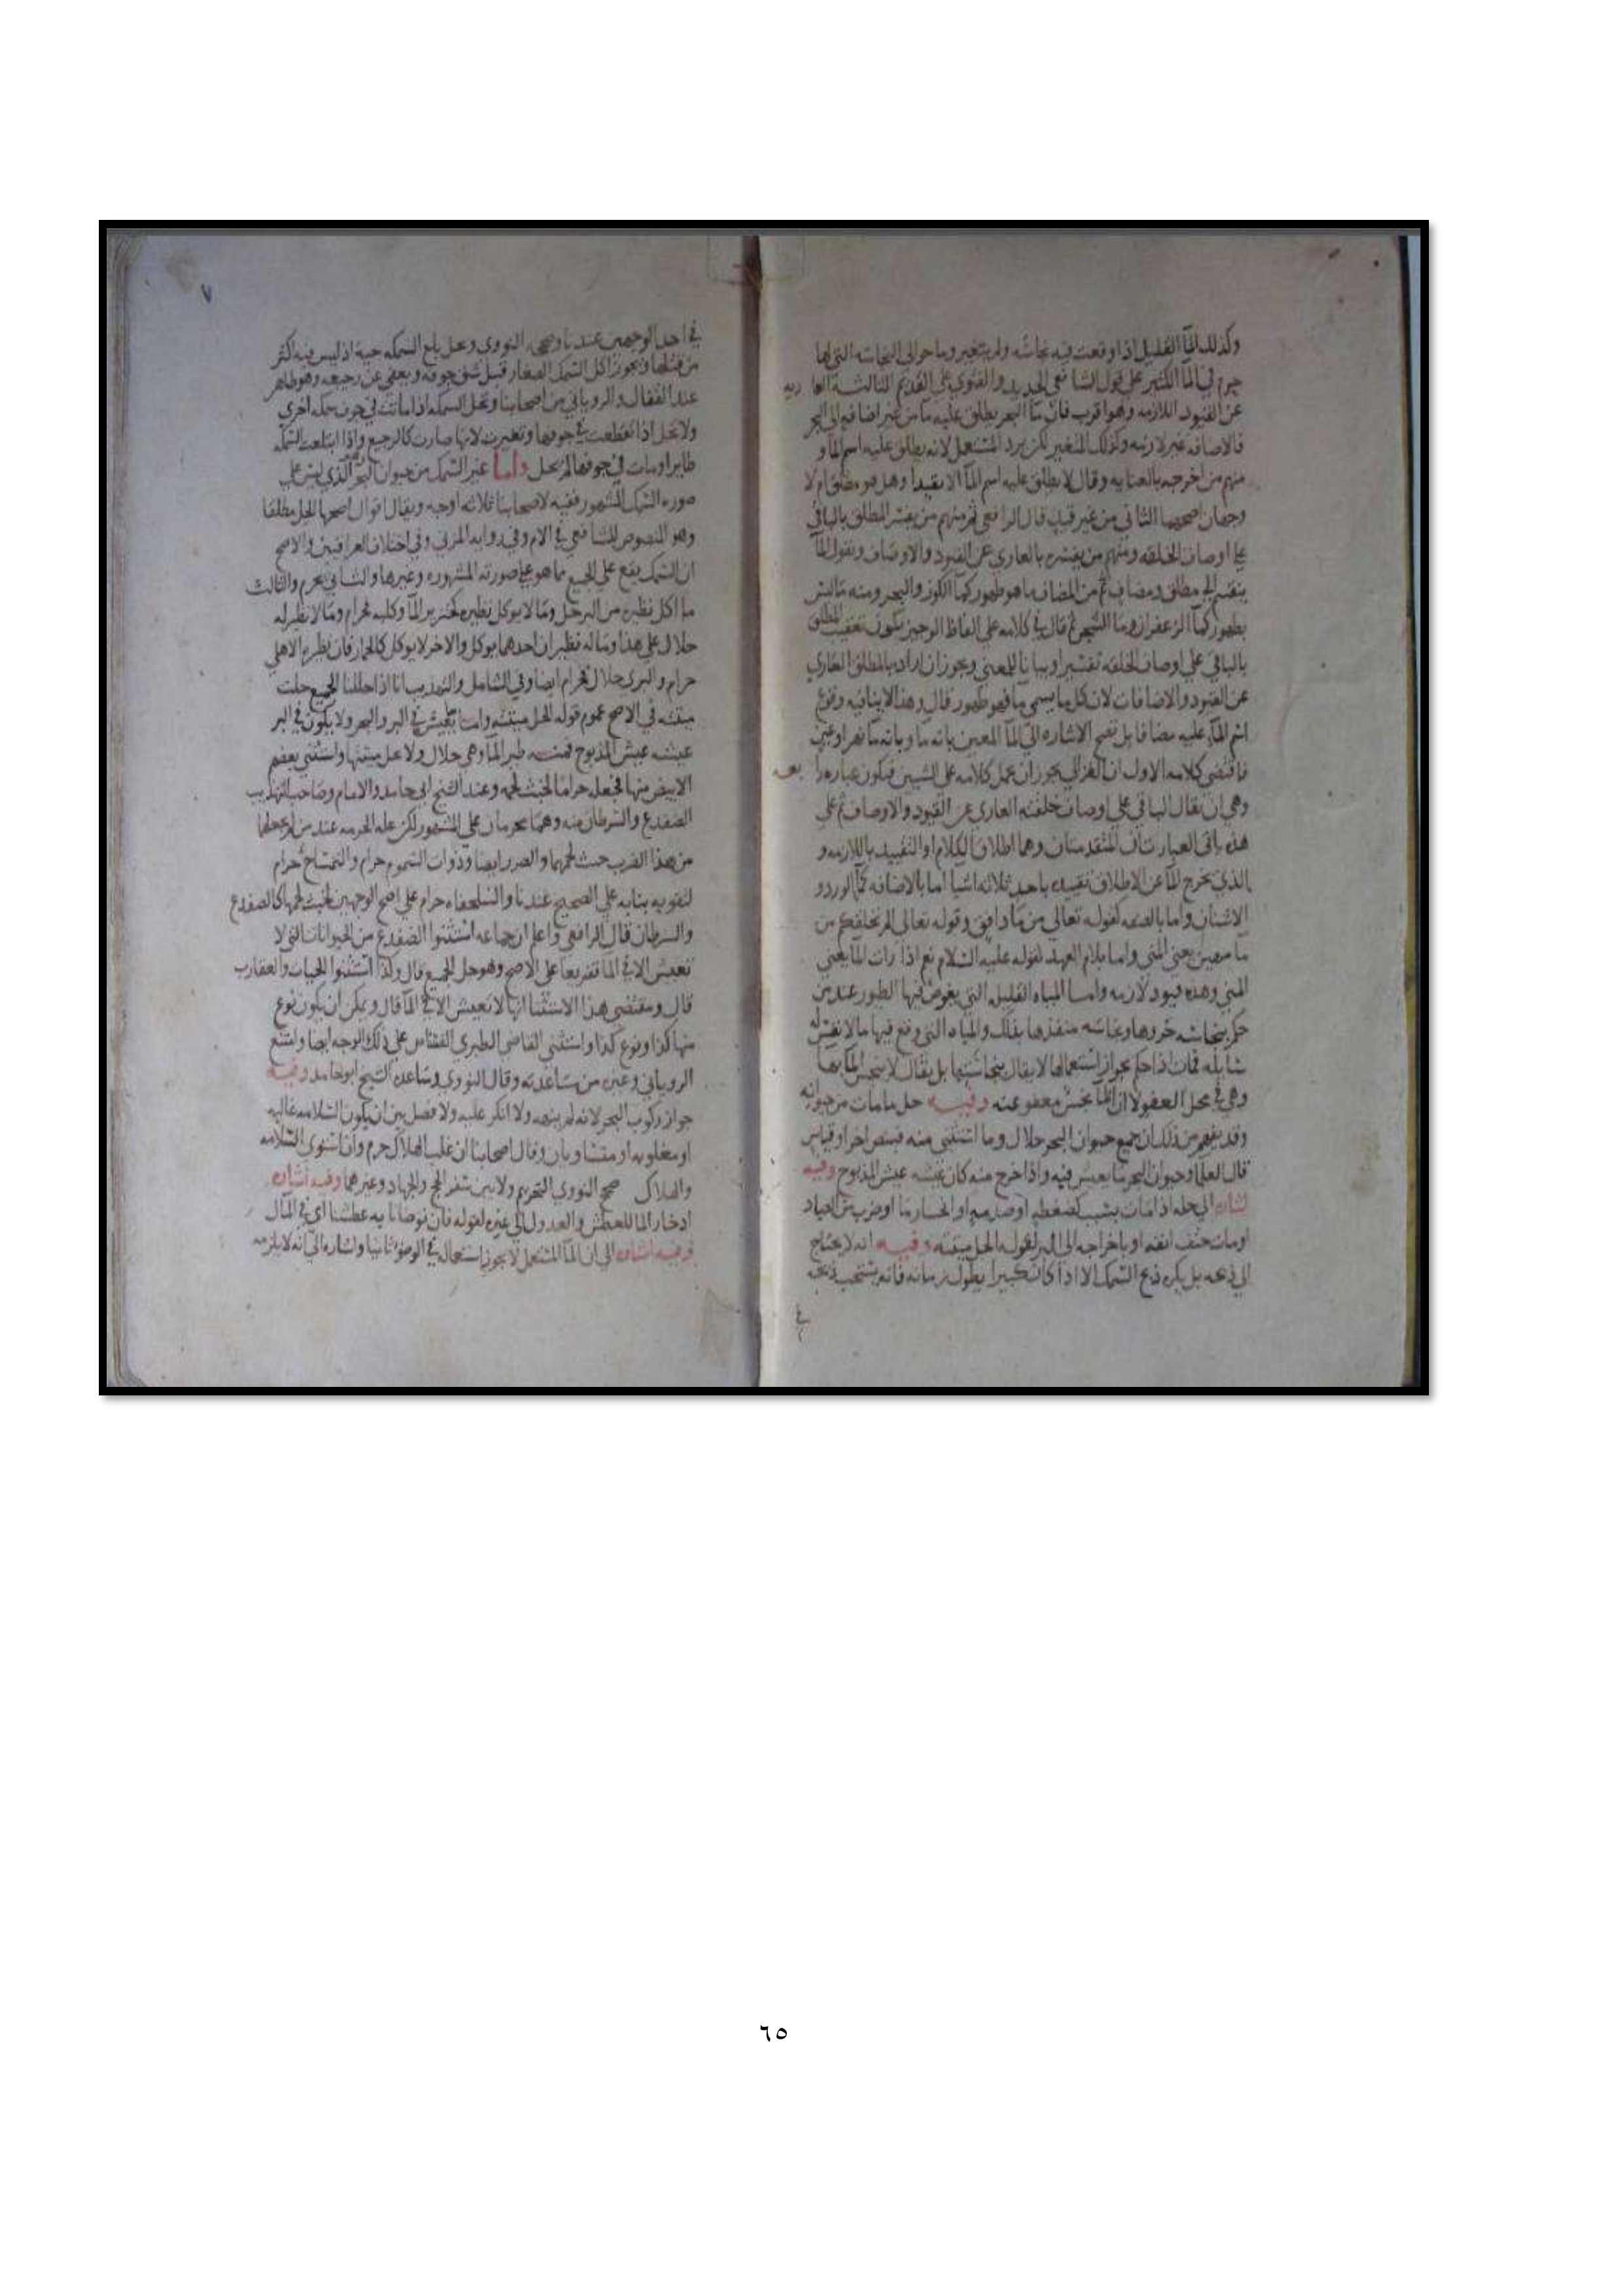 وكذلك المآ القليل اذا وقعت فيه نجاسه ولم يتغير وما حوالي النجاسه التي لها
جرم في المآ الكثير على قول الشافعي الجديد والفتوى على القديم الثالثة العا ريه
عن القيود اللازمه وهو اقرب فان مآ البحر يطلق عليه مآ من غير اضافه الى البحر
فالاضافه غير لازمه وكذلك المتغير لكن يرد المستعمل لانه يطلق عليه اسم المآ و
منهم من اخرجه بالعنايه وقال لا يطلق عليه اسم المآ الا مقيدا وهل هو مطلق ام لا
وجهان اصحهما الثاني من غير قيد قال الرافعي ثم منهم من يفسر المطلق بالباقي
على اوصاف الخلقه ومنهم من يفسره بالعاري عن القيود والاوصاف ونقول المآ
ينقسم الى مطلق ومضاف ثم من المضاف ما هو طهور كمآ الكوز والبحر ومنه ما ليس
بطهور كمآ الزعفران ومآ الشجر ثم قال في كلامه على الفاظ الوجيز يكون تعقيب المطلق
بالباقي على اوصاف الخلقه تفسيرا وبيانا للمعنى ويجوز ان اراد بالمطلق العاري
عن القيود والاضافات لان كل ما يسمى مآ فهو طهور قال وهذا لا ينافيه وقوع
اسم المآء عليه مضافا بل تصح الاشاره الي المآ المعين بانه مآ وبانه مآ نهر او عين
فاقتضى كلامه الاول ان الغزالي يجوز ان يحمل كلامه على الشيين فيكون عباره را بعه
وهي ان يقال الباقي على اوصاف خلقته العاري عن القيود والاوصاف ثم على
هذه باقي العبارتان المتقدمتان وهما اطلاق الكلام او التقييد باللازمه و
الذي يخرج المآ عن الاطلاق تقييده باحد ثلاثه اشيا اما بالاضافه كمآ الورد و
الاشنان واما بالصفه لقوله تعالى من مآ دافق وقوله تعالى الم نخلقكم من
مآ مهين يعني المني واما بلام العهد لقوله عليه السلام نعم اذا رات المآ يعني
المني وهذه قيود لازمه وامـا المياه القليله التي يغوص فيها الطيور عند من
حكم بنجاسه خروها ونجاسه منفذها بذلك والمياه التي وقع فيها ما لا نفس له
سايله فمات اذا حكم بجواز استعمالها لا يقال بنجاستها بل يقال لا ينجس المآ بها
وهي في محل العفو لا ان المآ نجس معفو عنه وفيـه حل ما مات من حيوانه
وقد يفهم من ذلك ان جميع حيوان البحر حلال وما استثني منه فبنص اخر او قياس
قال العلمآ وحيوان البحر ما يعيش فيه واذا خرج منه كان عيشه عيش المذبوح وفيه
اشاره الى حله اذا مات بسبب كضغطه او صدمه او انحسار مآ او ضرب من الصياد
او مات حتف انفه او باخراجه الى البر لقوله الحل ميتته وفيـه انه لا يحتاج
الى ذبحه بل يكره ذبح السمك الا اذا كان كبيرا يطول زمانه فانه يستحب ذبحه
في
٧
في احد الوجهين عندنا وصححه النووي ويحل بلع السمكه حية اذ ليس فيه اكثر
من قتلها ويجوز اكل السمك الصغار قبل شق جوفه ويعفى عن رجيعه وهو طاهر
عند القفال والروياني من اصحابنا وتحل السمكه اذا ماتت في جوف سمكه اخرى
ولا تحل اذا تقطعت في جوفها وتغيرت لانها صارت كالرجيع واذا ابتلعت السمكه
طايرا ومات في جوفها لم يحل وامـا غير السمك من حيوان البحر الذي ليس على
صوره السمك المشهور ففيه لاصحابنا ثلاثه اوجه ويقال اقوال اصحها الحل مطلقا
وهو المنصوص للشافعي في الام وفي روايه المزني وفي اختلاف العراقيين والاصح
ان السمك يقع على الجميع مما هو على صورته المشهوره وغيرها والثاني يحرم والثالث
ما اكل نظيره من البر حل وما لا يوكل نظيره كخنزير المآ وكلبه فحرام وما لا نظير له
حلال على هذا وما له نظيران احدهما يوكل والاخر لا يوكل كالحمار فان نظيره الاهلي
حرام والبري حلال فحرام ايضا وفي الشامل والتهذيب انا اذا حللنا الجميع حلت
ميتته في الاصح لعموم قوله الحل ميتته وامـا ما يعيش في البر والبحر ولا يكون في البر
عيشه عيش المذبوح فمنـه طير المآ وهي حلال ولا تحل ميتتها واستثني بعضهم
الابيض منها فجعله حراما لخبث لحمه وعند الشيخ ابي حامد والامام وصاحب التهذيب
الضفدع والسرطان منه وهما محرمان على المشهور لكن عله الحرمه عند من لم يجعلهما
من هذا الضرب خبث لحمهما والضرر ايضا وذوات السموم حرام والتمساح حرام
لتقويه بنابه على الصحيح عندنا والسلحفاه حرام على اصح الوجهين لخبث لحمها كالضفدع
والسرطان قال الرافعي واعلم ان جماعه استثنوا الضفدع من الحيوانات التي لا
تعيش الا في المآ تفريعا على الاصح وهو حل الجميع قال وكذا استثنوا الحيات والعقارب
قال ومقتضى هذا الاستثنا انها لا تعيش الا في المآ قال ويمكن ان يكون نوع
منها كذا ونوع كذا واستثنى القاضي الطبري النسناس على ذلك الوجه ايضا وامتنع
الروياني وغيره من مساعدته وقال النووي وساعده الشيخ ابو حامد وفيـه
جواز ركوب البحر لانه لم ينهه ولا انكر عليه ولا فصل بين ان يكون السلامه غالبه
او مغلوبه او متساويان وقال اصحابنا ان غلب الهلاك حرم وان استوى السلامه
والهلاك صحح النووي التحريم ولا بين سفر الحج والجهاد وغيرهما وفيه اشاره
ادخار المآ للعطش والعدول الى غيره لقوله فان توضانا به عطشنا اي في المآل
وفيه اشاره الى ان المآ المستعمل لا يجوز استعماله في الوضوء ثانيا واشاره الى انه لا يلزمه
٦٥